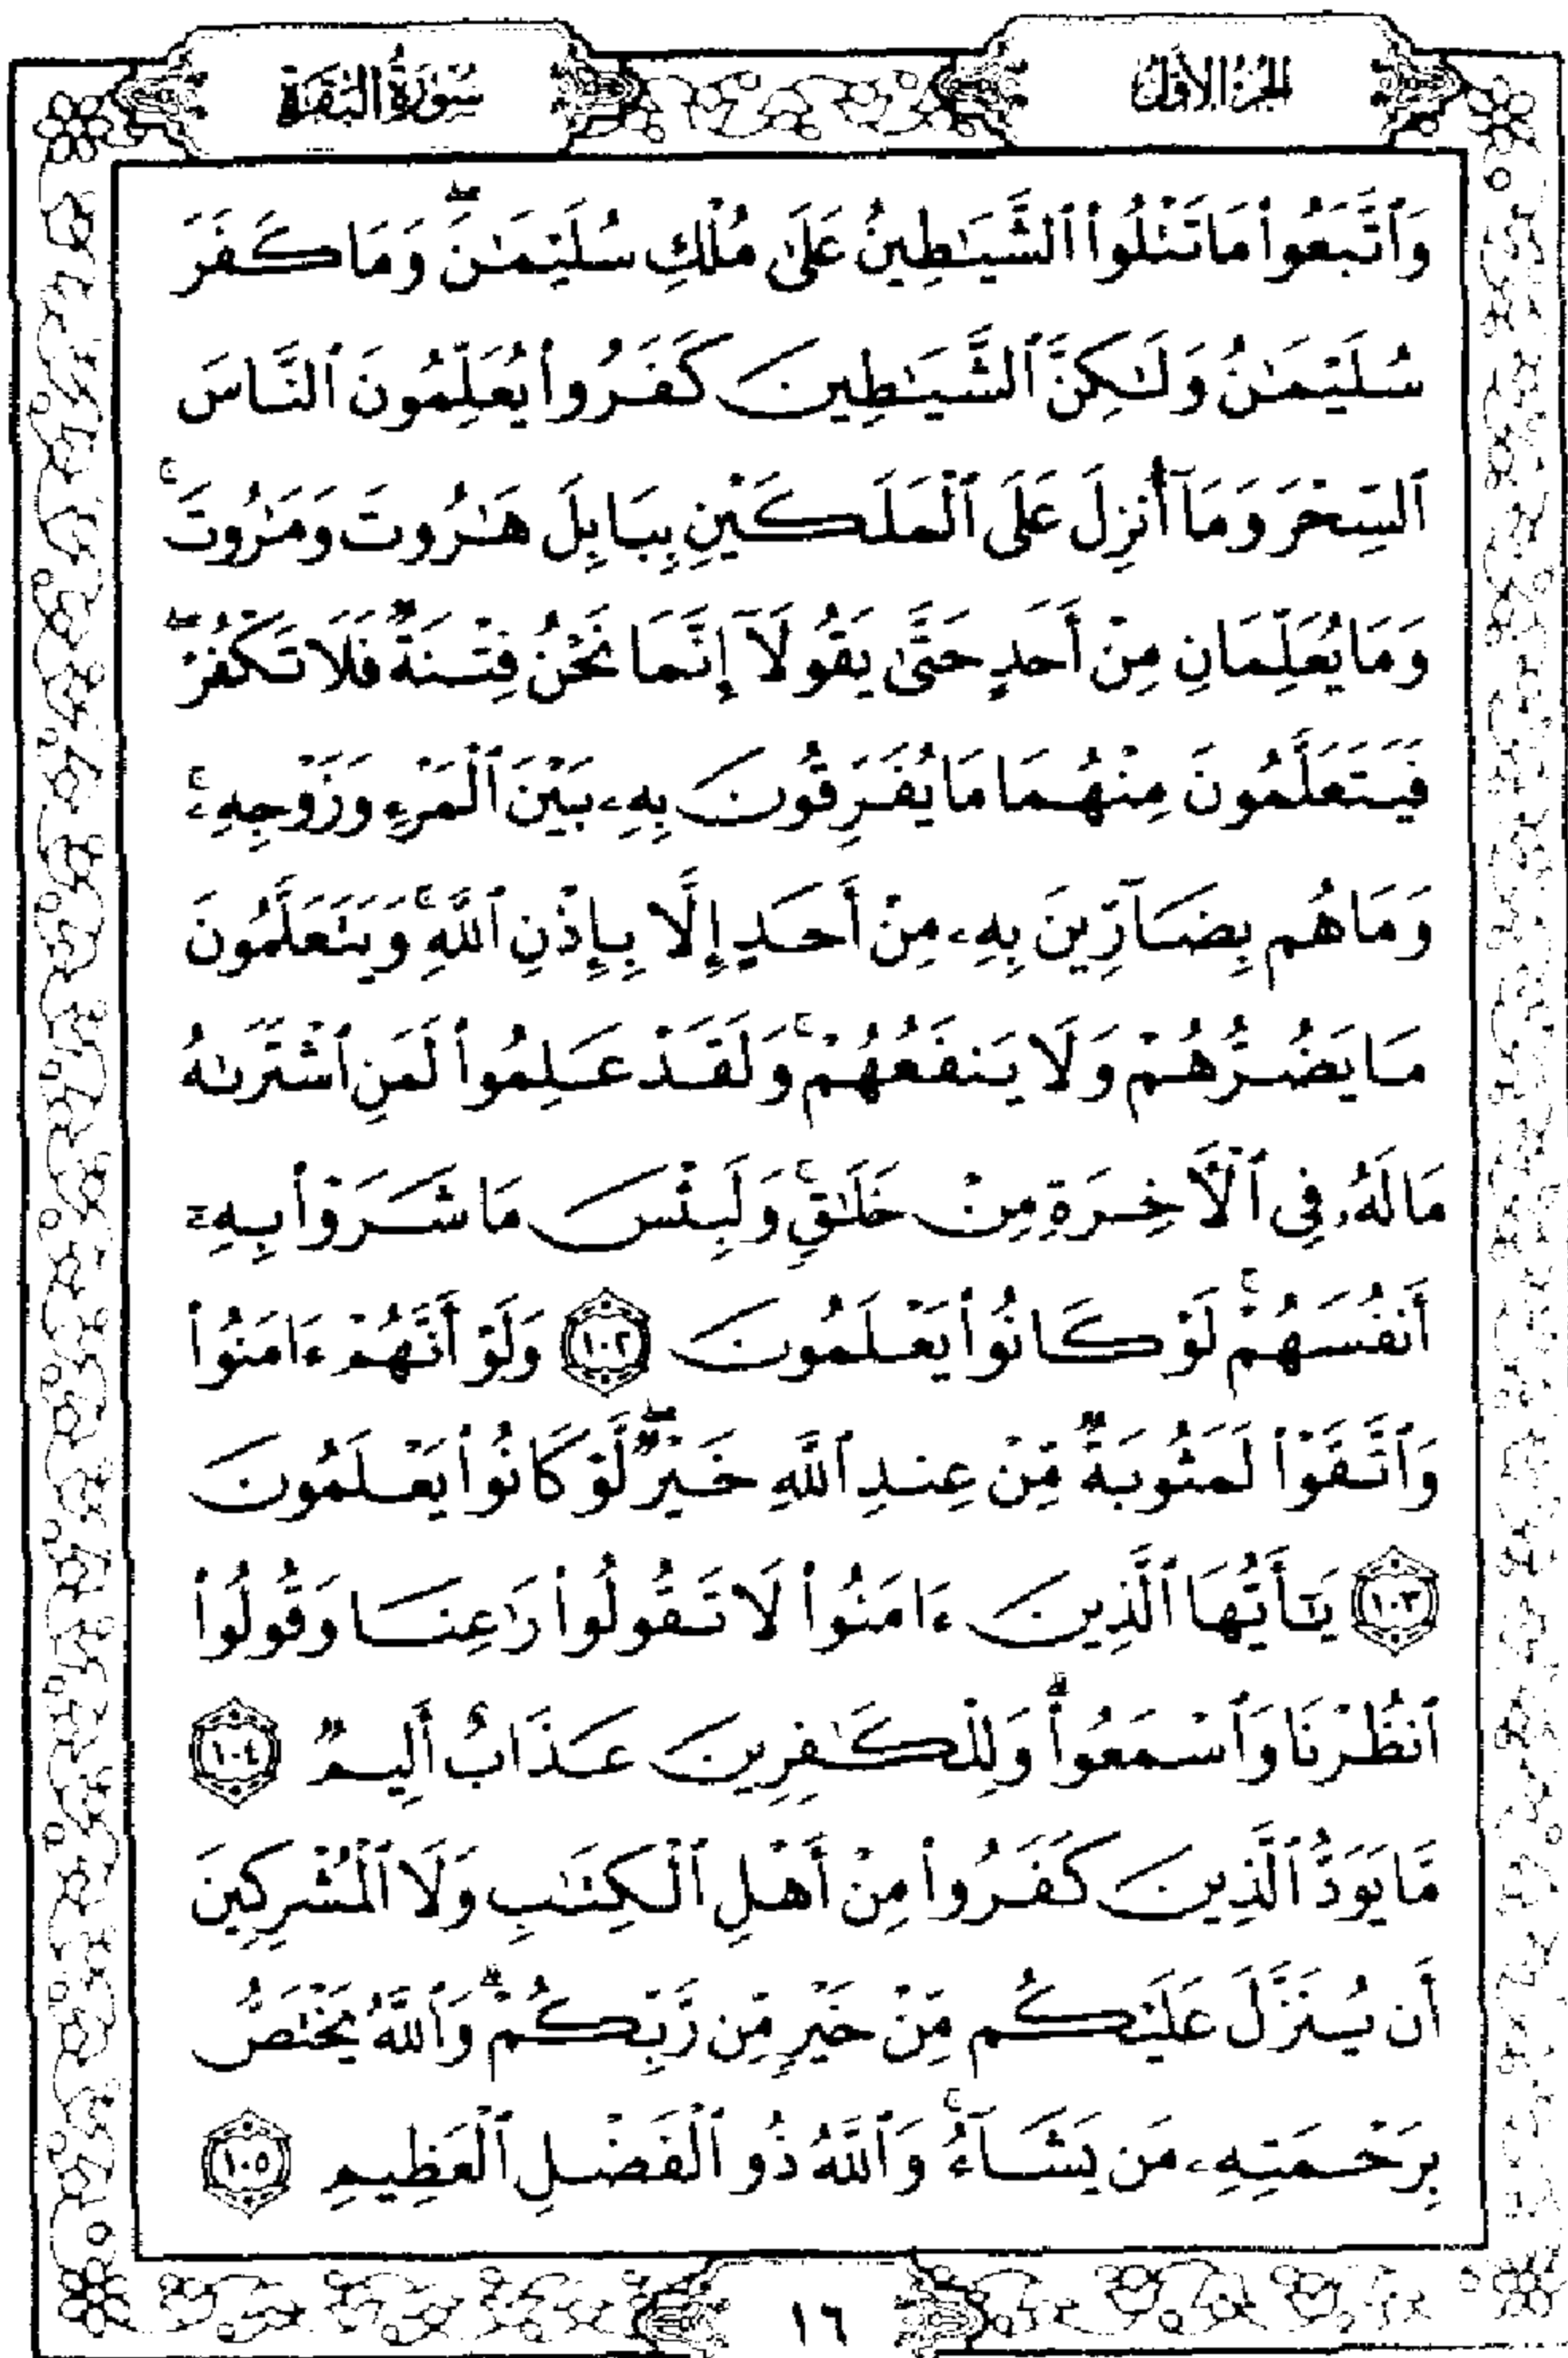 الجزء الأول
سورة البقرة
وَٱتَّبَعُوا۟ مَا تَتْلُوا۟ ٱلشَّيَٰطِينُ عَلَىٰ مُلْكِ سُلَيْمَٰنَۖ وَمَا كَفَرَ
سُلَيْمَٰنُ وَلَٰكِنَّ ٱلشَّيَٰطِينَ كَفَرُوا۟ يُعَلِّمُونَ ٱلنَّاسَ
ٱلسِّحْرَ وَمَآ أُنزِلَ عَلَى ٱلْمَلَكَيْنِ بِبَابِلَ هَٰرُوتَ وَمَٰرُوتَۚ
وَمَا يُعَلِّمَانِ مِنْ أَحَدٍ حَتَّىٰ يَقُولَآ إِنَّمَا نَحْنُ فِتْنَةٌ فَلَا تَكْفُرْۖ
فَيَتَعَلَّمُونَ مِنْهُمَا مَا يُفَرِّقُونَ بِهِۦ بَيْنَ ٱلْمَرْءِ وَزَوْجِهِۦۚ
وَمَا هُم بِضَآرِّينَ بِهِۦ مِنْ أَحَدٍ إِلَّا بِإِذْنِ ٱللَّهِۚ وَيَتَعَلَّمُونَ
مَا يَضُرُّهُمْ وَلَا يَنفَعُهُمْۚ وَلَقَدْ عَلِمُوا۟ لَمَنِ ٱشْتَرَىٰهُ
مَا لَهُۥ فِى ٱلْءَاخِرَةِ مِنْ خَلَٰقٍۚ وَلَبِئْسَ مَا شَرَوْا۟ بِهِۦٓ
أَنفُسَهُمْۚ لَوْ كَانُوا۟ يَعْلَمُونَ ١٠٢ وَلَوْ أَنَّهُمْ ءَامَنُوا۟
وَٱتَّقَوْا۟ لَمَثُوبَةٌ مِّنْ عِندِ ٱللَّهِ خَيْرٌۖ لَّوْ كَانُوا۟ يَعْلَمُونَ
١٠٣ يَٰٓأَيُّهَا ٱلَّذِينَ ءَامَنُوا۟ لَا تَقُولُوا۟ رَٰعِنَا وَقُولُوا۟
ٱنظُرْنَا وَٱسْمَعُوا۟ۗ وَلِلْكَٰفِرِينَ عَذَابٌ أَلِيمٌ ١٠٤
مَّا يَوَدُّ ٱلَّذِينَ كَفَرُوا۟ مِنْ أَهْلِ ٱلْكِتَٰبِ وَلَا ٱلْمُشْرِكِينَ
أَن يُنَزَّلَ عَلَيْكُم مِّنْ خَيْرٍ مِّن رَّبِّكُمْۗ وَٱللَّهُ يَخْتَصُّ
بِرَحْمَتِهِۦ مَن يَشَآءُۚ وَٱللَّهُ ذُو ٱلْفَضْلِ ٱلْعَظِيمِ ١٠٥
١٦